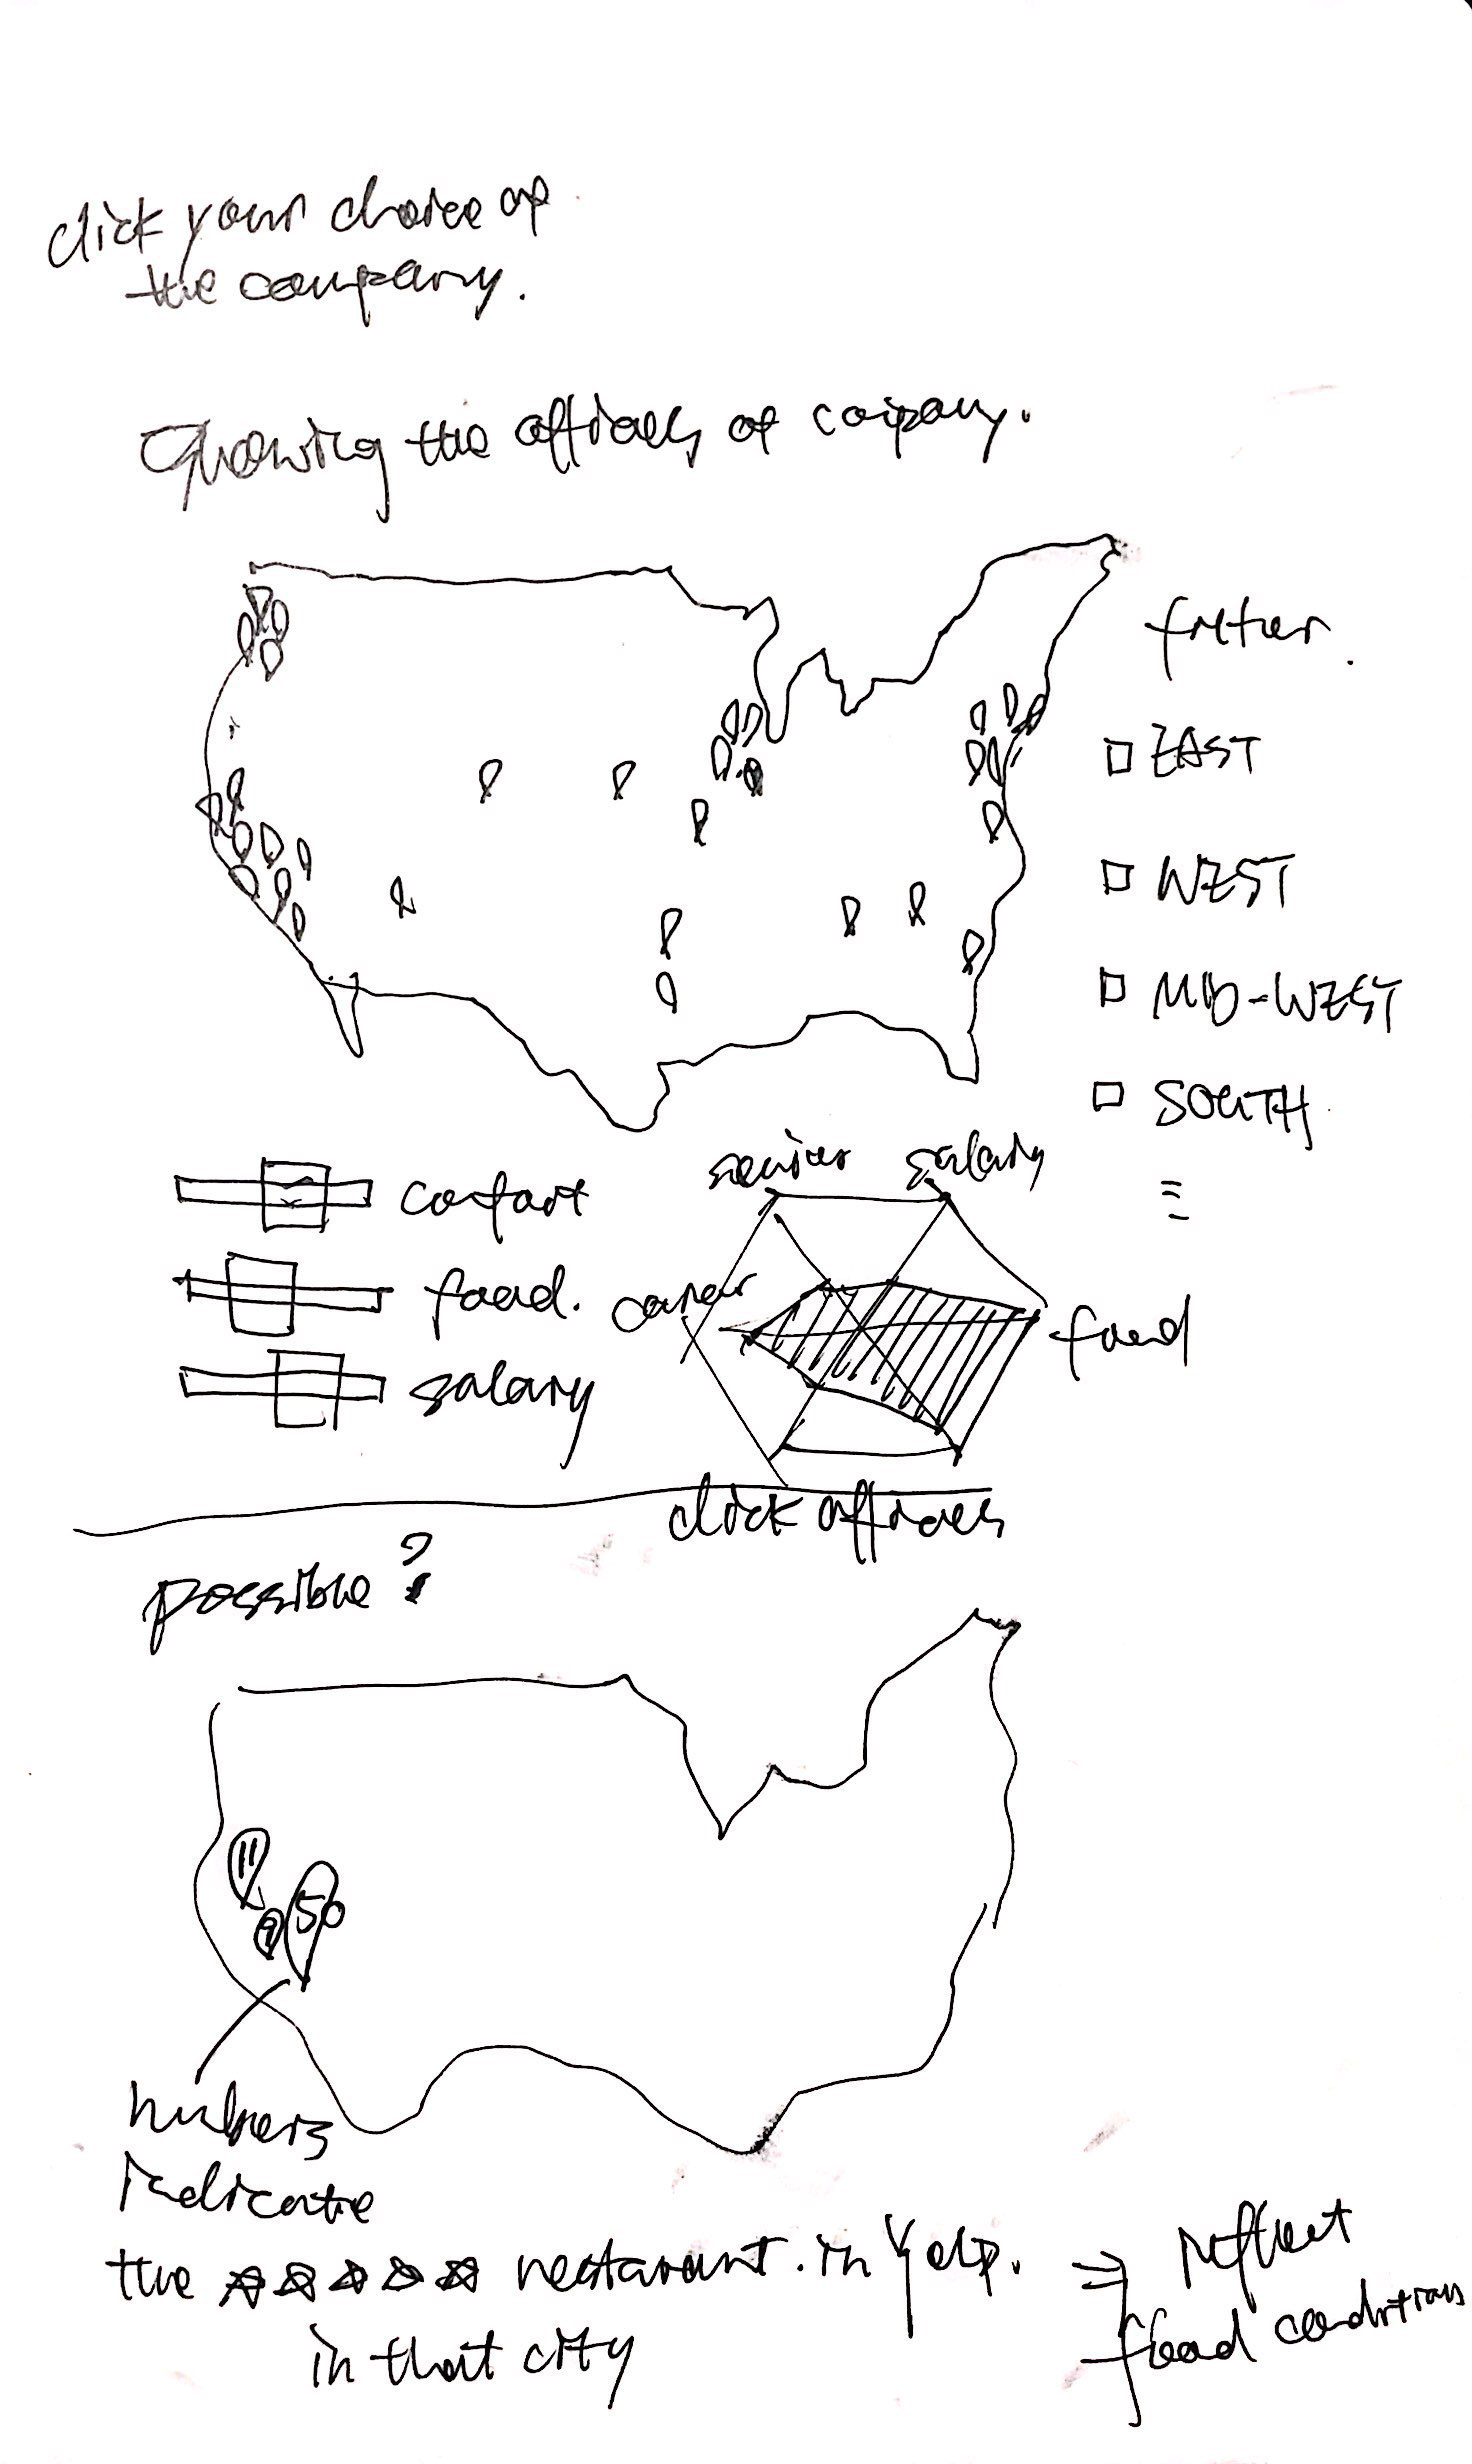 click your choice of
the company.
Showing the offices of company.
filter.
EAST
WEST
MID-WEST
SOUTH
senior salary
comfort
food. career
food
salary
click offices
possible?
11
9 50
numbers
indicate
the ☆☆☆☆☆ restaurant. in Yelp. ⇒ reflect
food conditions
in that city